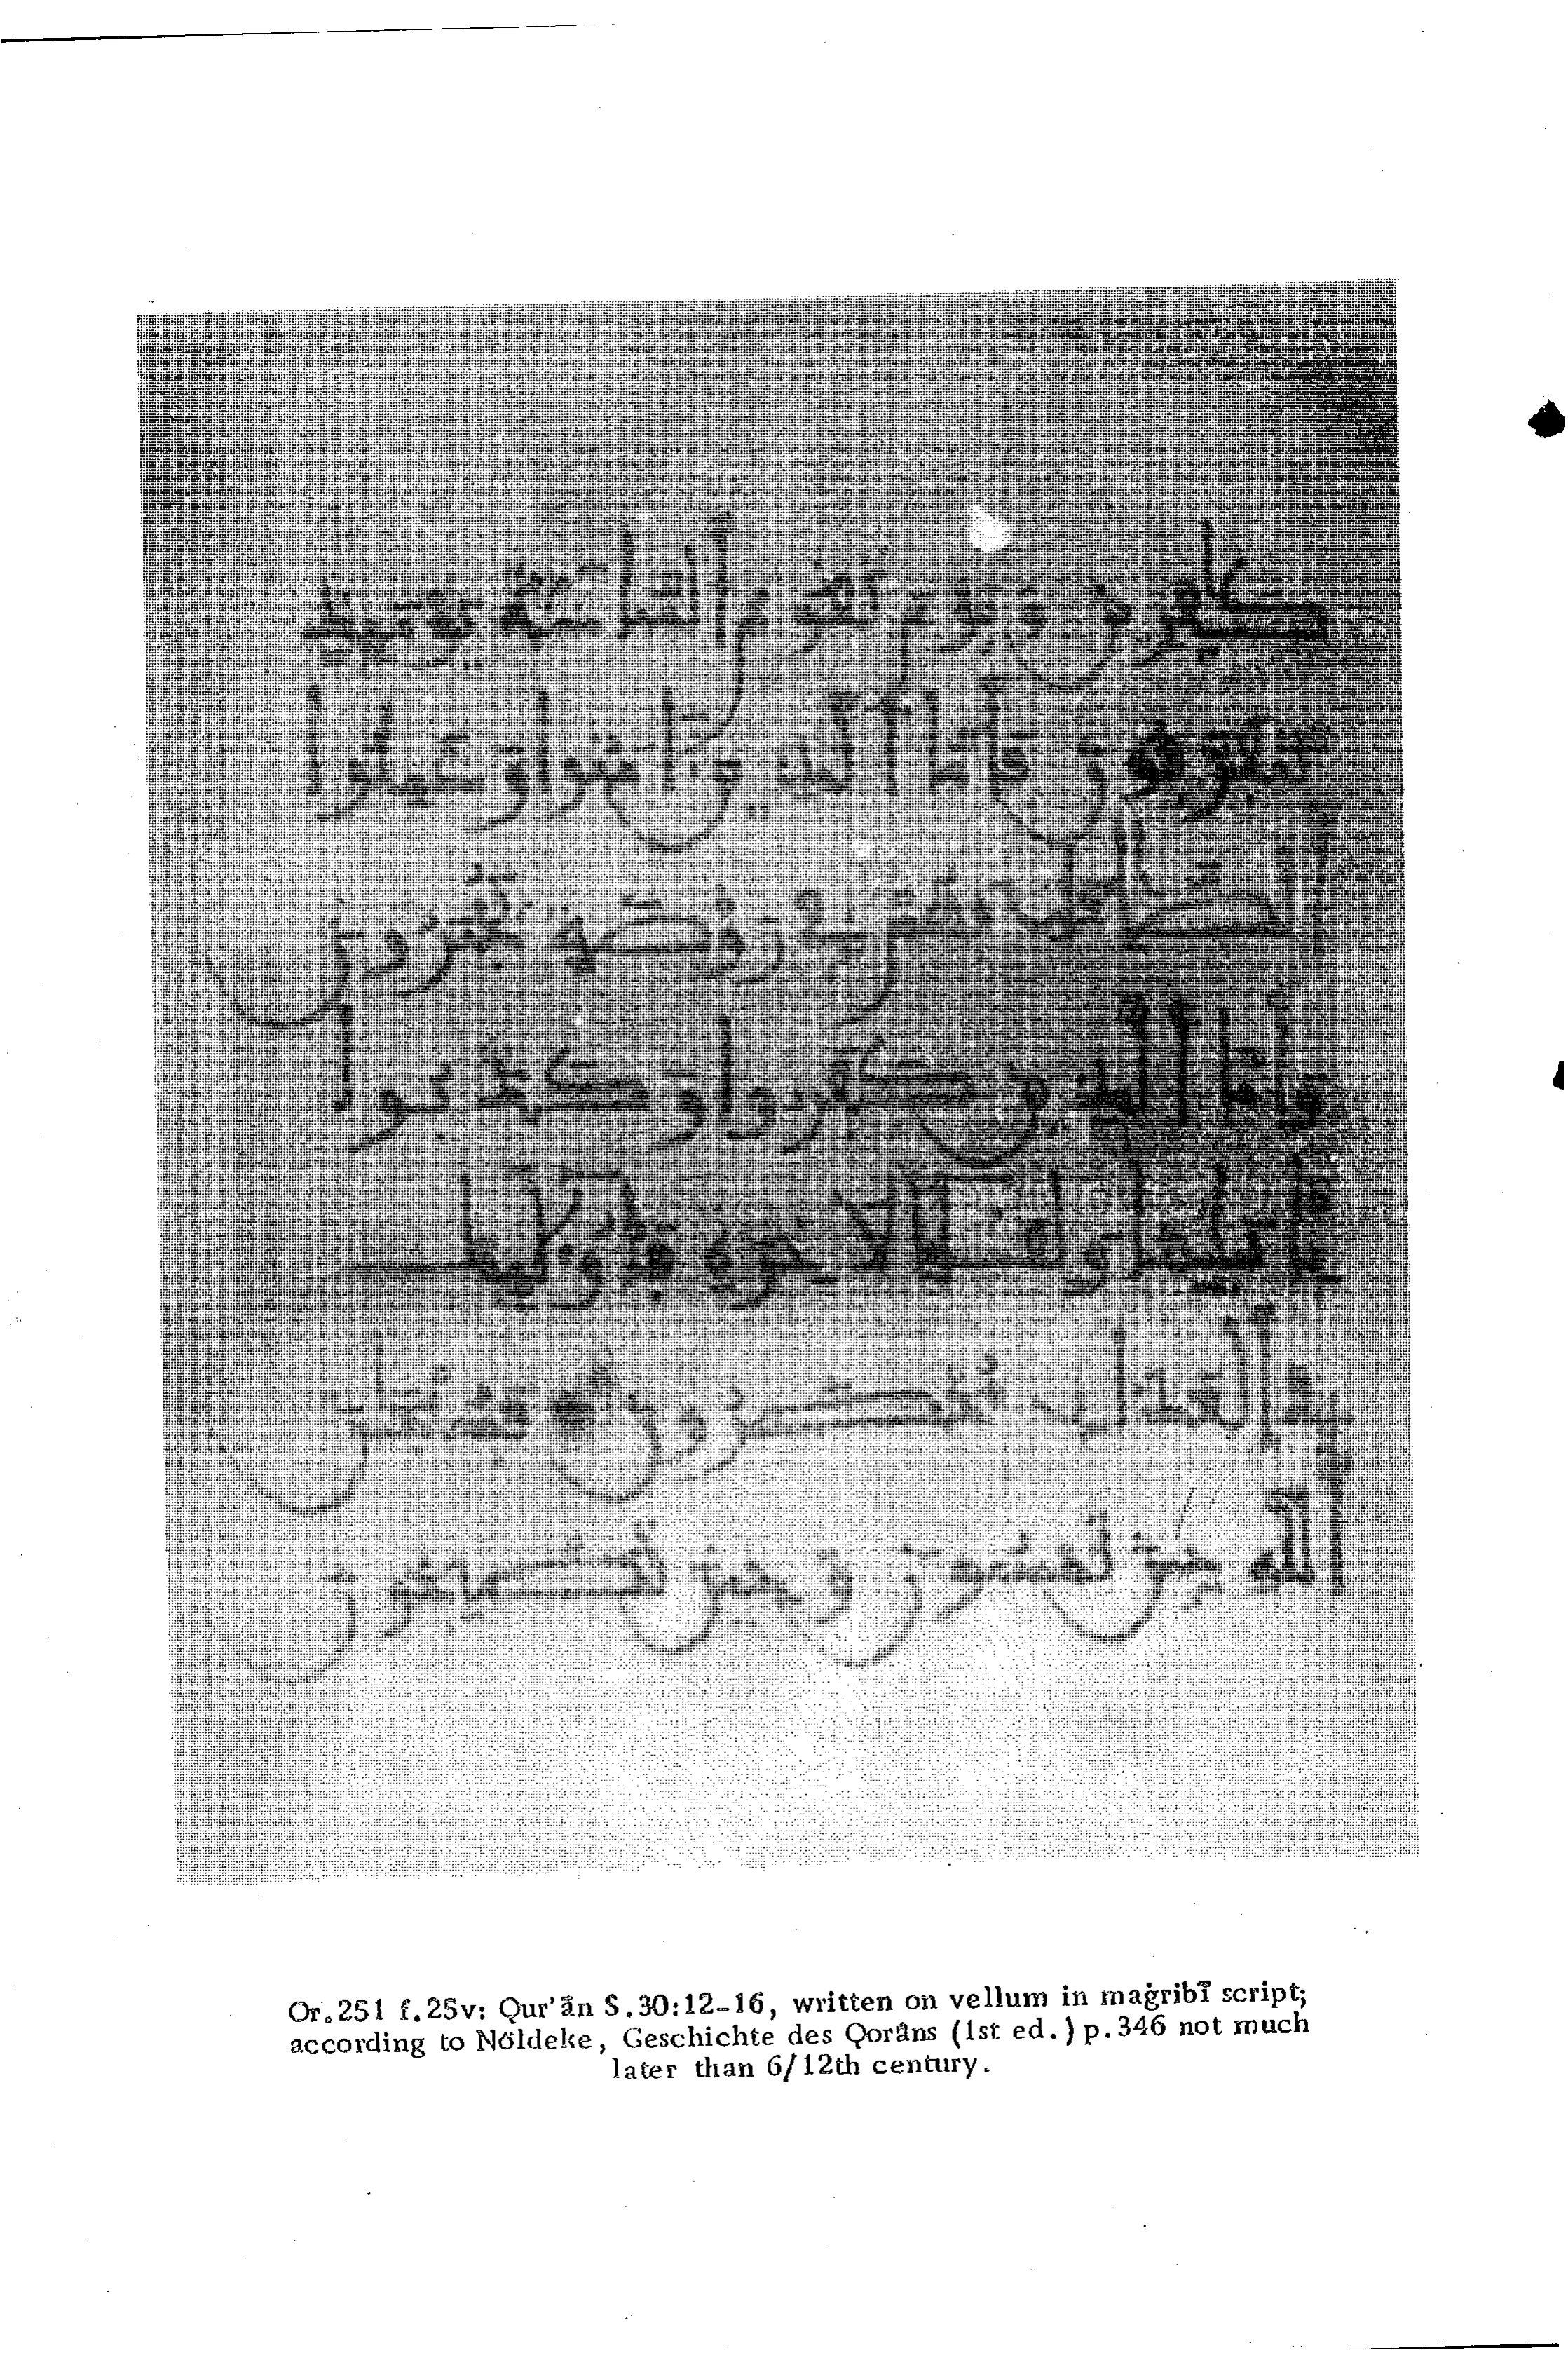 كفرين ويوم تقوم الساعة يومئذ
يتفرقون فأما الذين ءامنوا وعملوا
الصلحت فهم في روضة يحبرون
وأما الذين كفروا وكذبوا
بايتنا ولقاء الاخرة فأولئك
في العذاب محضرون فسبحن
الله حين تمسون وحين تصبحون
Or.251 f.25v: Qur'ān S.30:12-16, written on vellum in maġribī script;
according to Nöldeke, Geschichte des Qorâns (1st ed.) p.346 not much
later than 6/12th century.